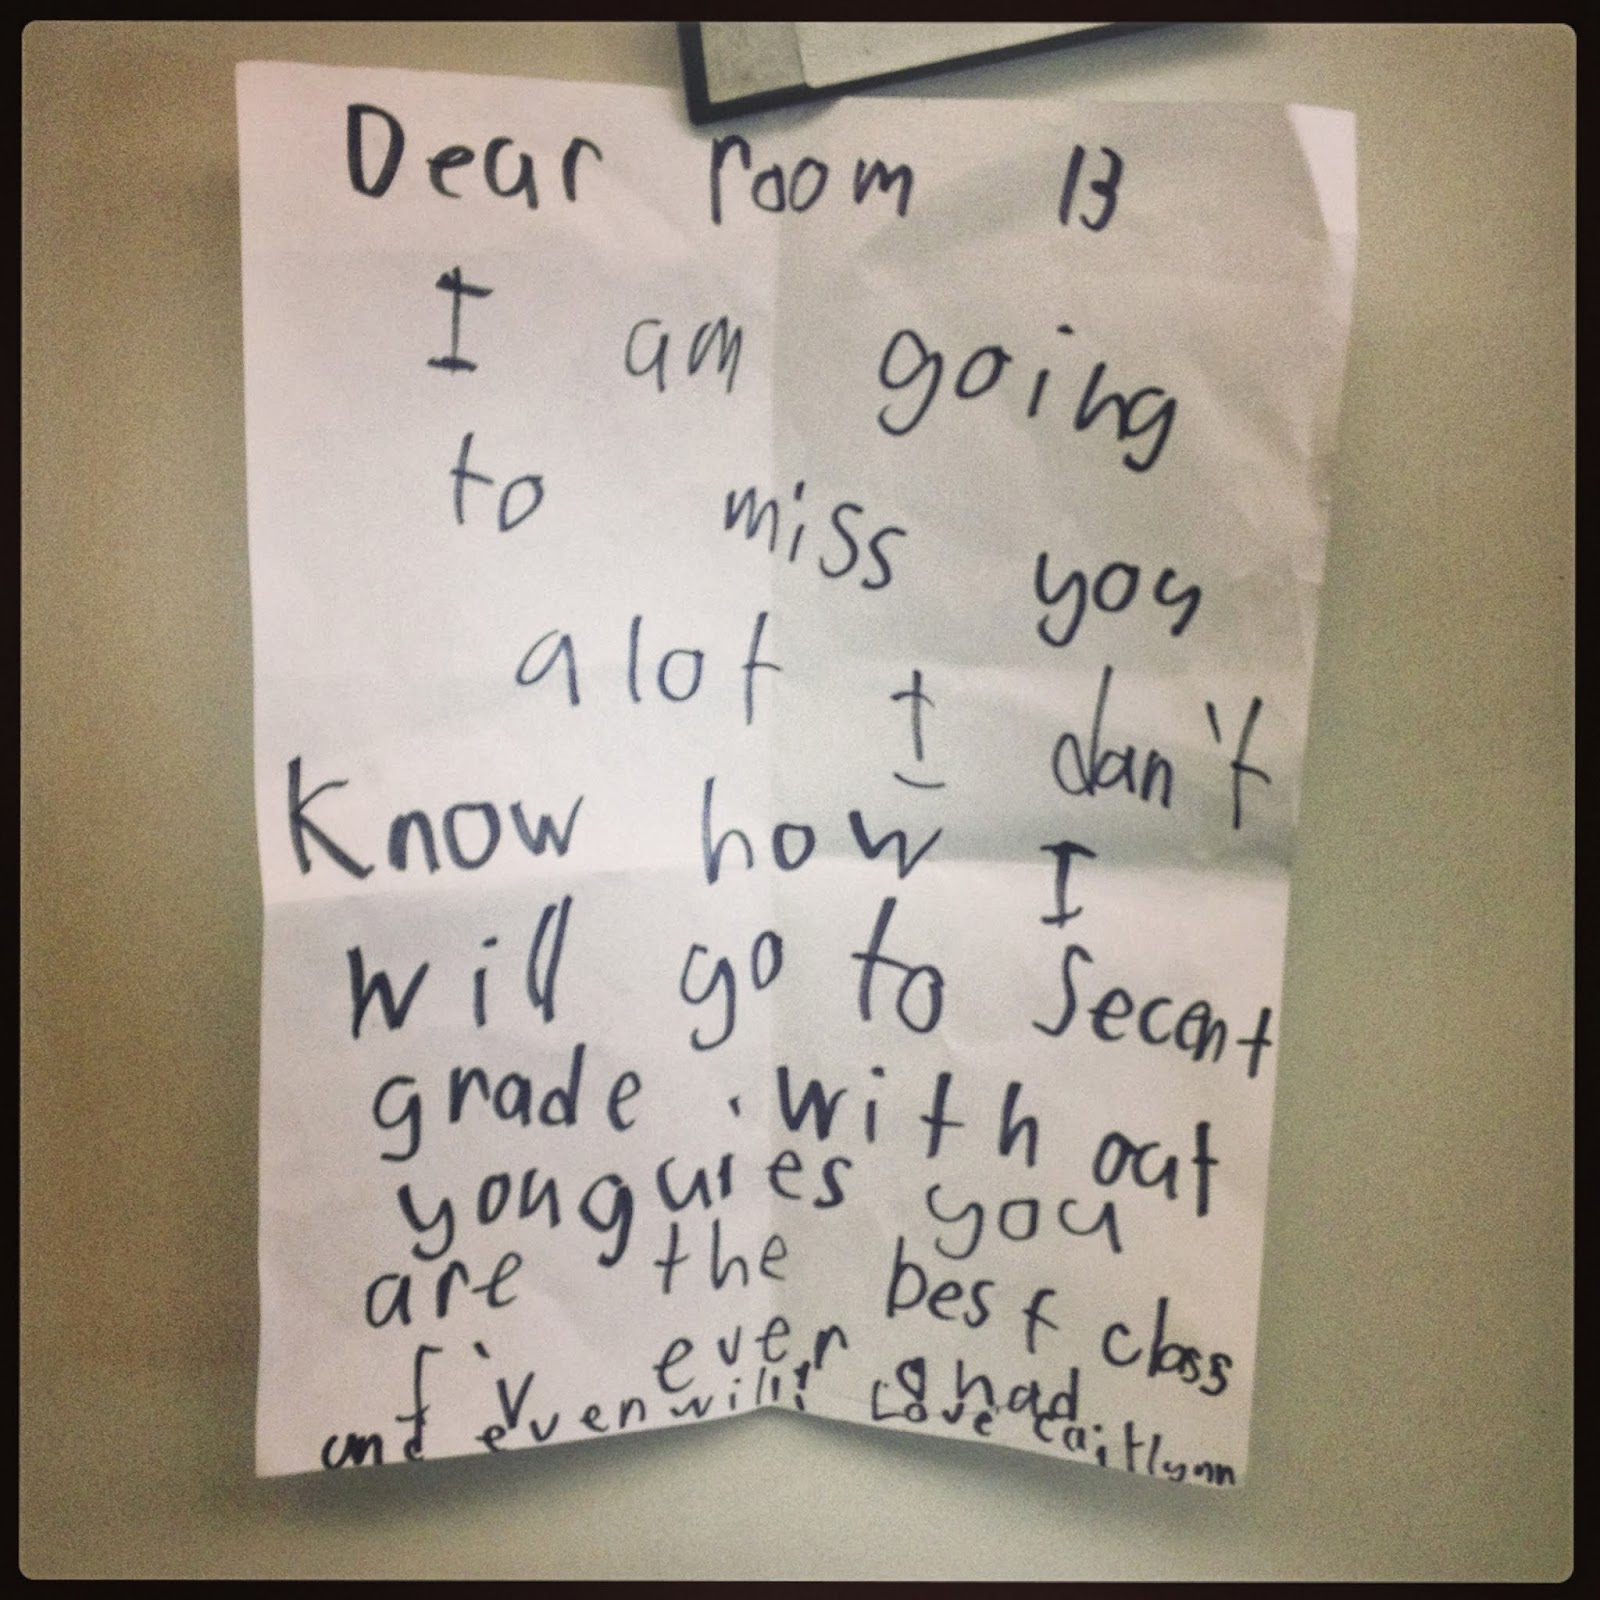 Dear room 13
I am going
to miss you
alot I dan't
Know how I
will go to Secent
grade. with out
you gures you
are the best class
I'v ever had
and even will! Love Caitlynn